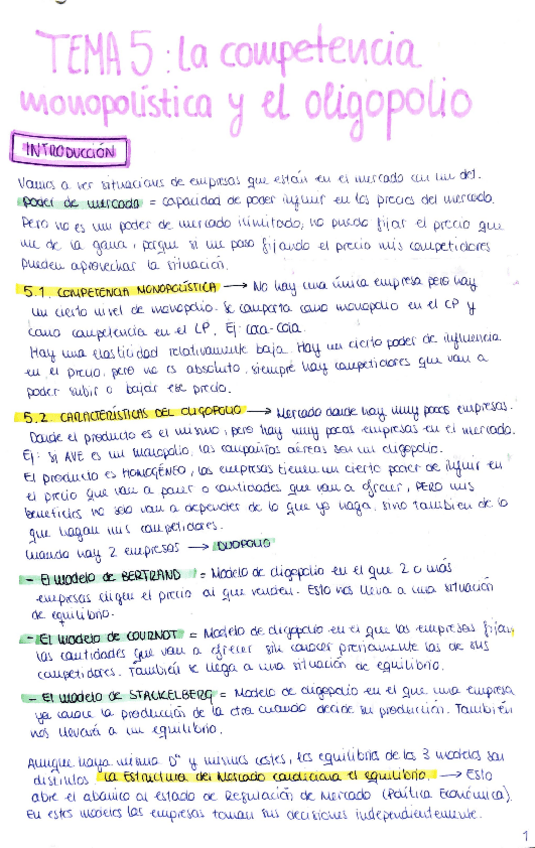 TEMA 5: La competencia
monopolística y el oligopolio
INTRODUCCIÓN
Vamos a ver situaciones de empresas que están en el mercado con un del.
poder de mercado = capacidad de poder influir en los precios del mercado.
Pero no es un poder de mercado ilimitado, no puedo fijar el precio que
me de la gana, porque si me paso fijando el precio mis competidores
pueden aprovechar la situación.
5.1. COMPETENCIA MONOPOLÍSTICA → No hay una única empresa pero hay
un cierto nivel de monopolio. Se comporta como monopolio en el CP y
como competencia en el CP. Ej: coca-cola.
Hay una elasticidad relativamente baja. Hay un cierto poder de influencia
en el precio, pero no es absoluto, siempre hay competidores que van a
poder subir o bajar ese precio.
5.2. CARACTERÍSTICAS DEL OLIGOPOLIO → Mercado donde hay muy pocas empresas.
Donde el producto es el mismo, pero hay muy pocas empresas en el mercado.
Ej: Si AVE es un monopolio, las compañías aéreas son un oligopolio.
El producto es HOMOGÉNEO, las empresas tienen un cierto poder de influir en
el precio que van a poner o cantidades que van a ofrecer, PERO mis
beneficios no solo van a depender de lo que yo haga, sino también de lo
que hagan mis competidores.
Cuando hay 2 empresas → DUOPOLIO
- El modelo de BERTRAND = Modelo de oligopolio en el que 2 o más
empresas eligen el precio al que venden. Esto nos lleva a una situación
de equilibrio.
- El modelo de COURNOT = Modelo de oligopolio en el que las empresas fijan
las cantidades que van a ofrecer sin conocer previamente las de sus
competidores. También se llega a una situación de equilibrio.
- El modelo de STACKELBERG = Modelo de oligopolio en el que una empresa
ya conoce la producción de la otra cuando decide su producción. También
nos llevará a un equilibrio.
Aunque haya misma Dª y mismos costes, los equilibrios de los 3 modelos son
distintos. La Estructura del Mercado condicionará el equilibrio. → Esto
abre el abanico al estado de Regulación de Mercado (Política Económica).
En estos modelos las empresas toman sus decisiones independientemente.
1